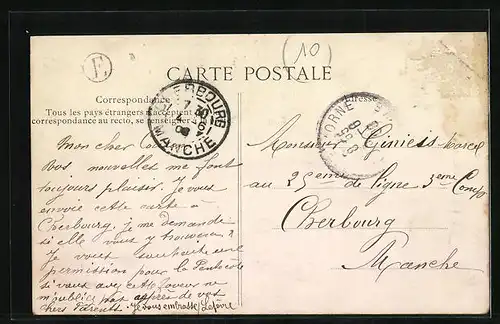 (10)
E
CARTE POSTALE
Correspondance
Tous les pays étrangers n'acceptent
correspondance au recto, se renseigner
Adresse
CHERBOURG
7 30
MANCHE
ORNE
Mon cher
Vos nouvelles me font
toujours plaisir. Je vous
envoie cette carte à
Cherbourg, je me demande
si elle vous y trouvera ?
Je vous souhaite une
permission pour la Pentecôte
si vous avez cette faveur ne
m'oubliez pas auprès de vos
chers Parents. Je vous embrasse Lefèvre
Monsieur Giniess Marcel
au 25eme de ligne 3eme Comp
Cherbourg
Manche